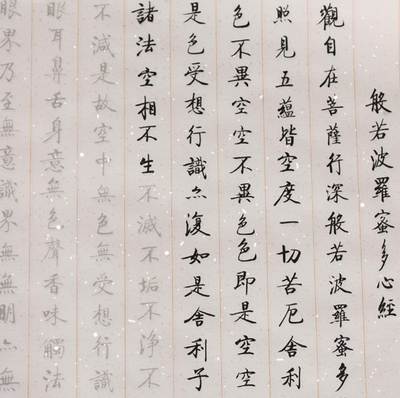 般若波羅蜜多心經
觀自在菩薩行深般若波羅蜜多
照見五蘊皆空度一切苦厄舍利
色不異空空不異色色即是空空
是色受想行識亦復如是舍利子
諸法空相不生不滅不垢不淨不
不減是故空中無色無受想行識
眼耳鼻舌身意無色聲香味觸法
眼界乃至無意識界無無明亦無